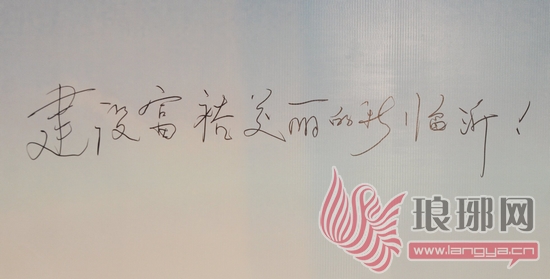 建设富裕美丽的新临沂！
琅琊网
www.langya.cn